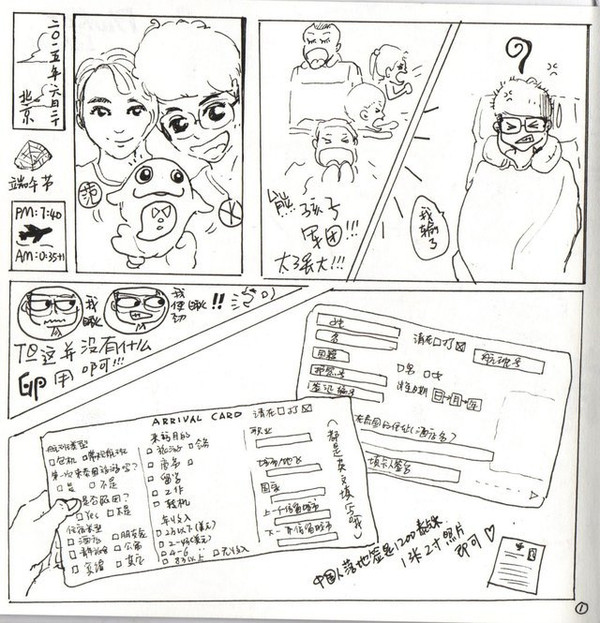 二〇一五年六月二十
北京
端午节
PM:7:40
AM:0:35+1
熊孩子
军团!!!
太强大!!!
?
我输了
我瞅
我使劲瞅!!
但这并没有什么
GP用 叩可!!!
姓
名
国籍
护照号
签证编号
请在□打☒
航班号
□男 □女
出生日期 日-月-年
在泰国的住址(酒店名)?
填卡人签名
ARRIVAL CARD 请在□打☒
航班类型
□包机 □常规航班
第一次来泰国旅游吗?
□是 □不是
是否跟团?
□Yes □不是
住宿类型
□酒店 □朋友家
□青旅 □公寓
□宾馆 □其它
来的目的
□旅游
□商务
□留学
□工作
□转机
年收入
□2万以下(美元)
□2-4(美元)
□4-6
□8万以上
□无收入
职业
城市/地区
国家
上一个停留城市
下一个停留城市
(都是英文填写哦)
中国人落地签是1200泰铢
1张2寸照片
即可♡
①